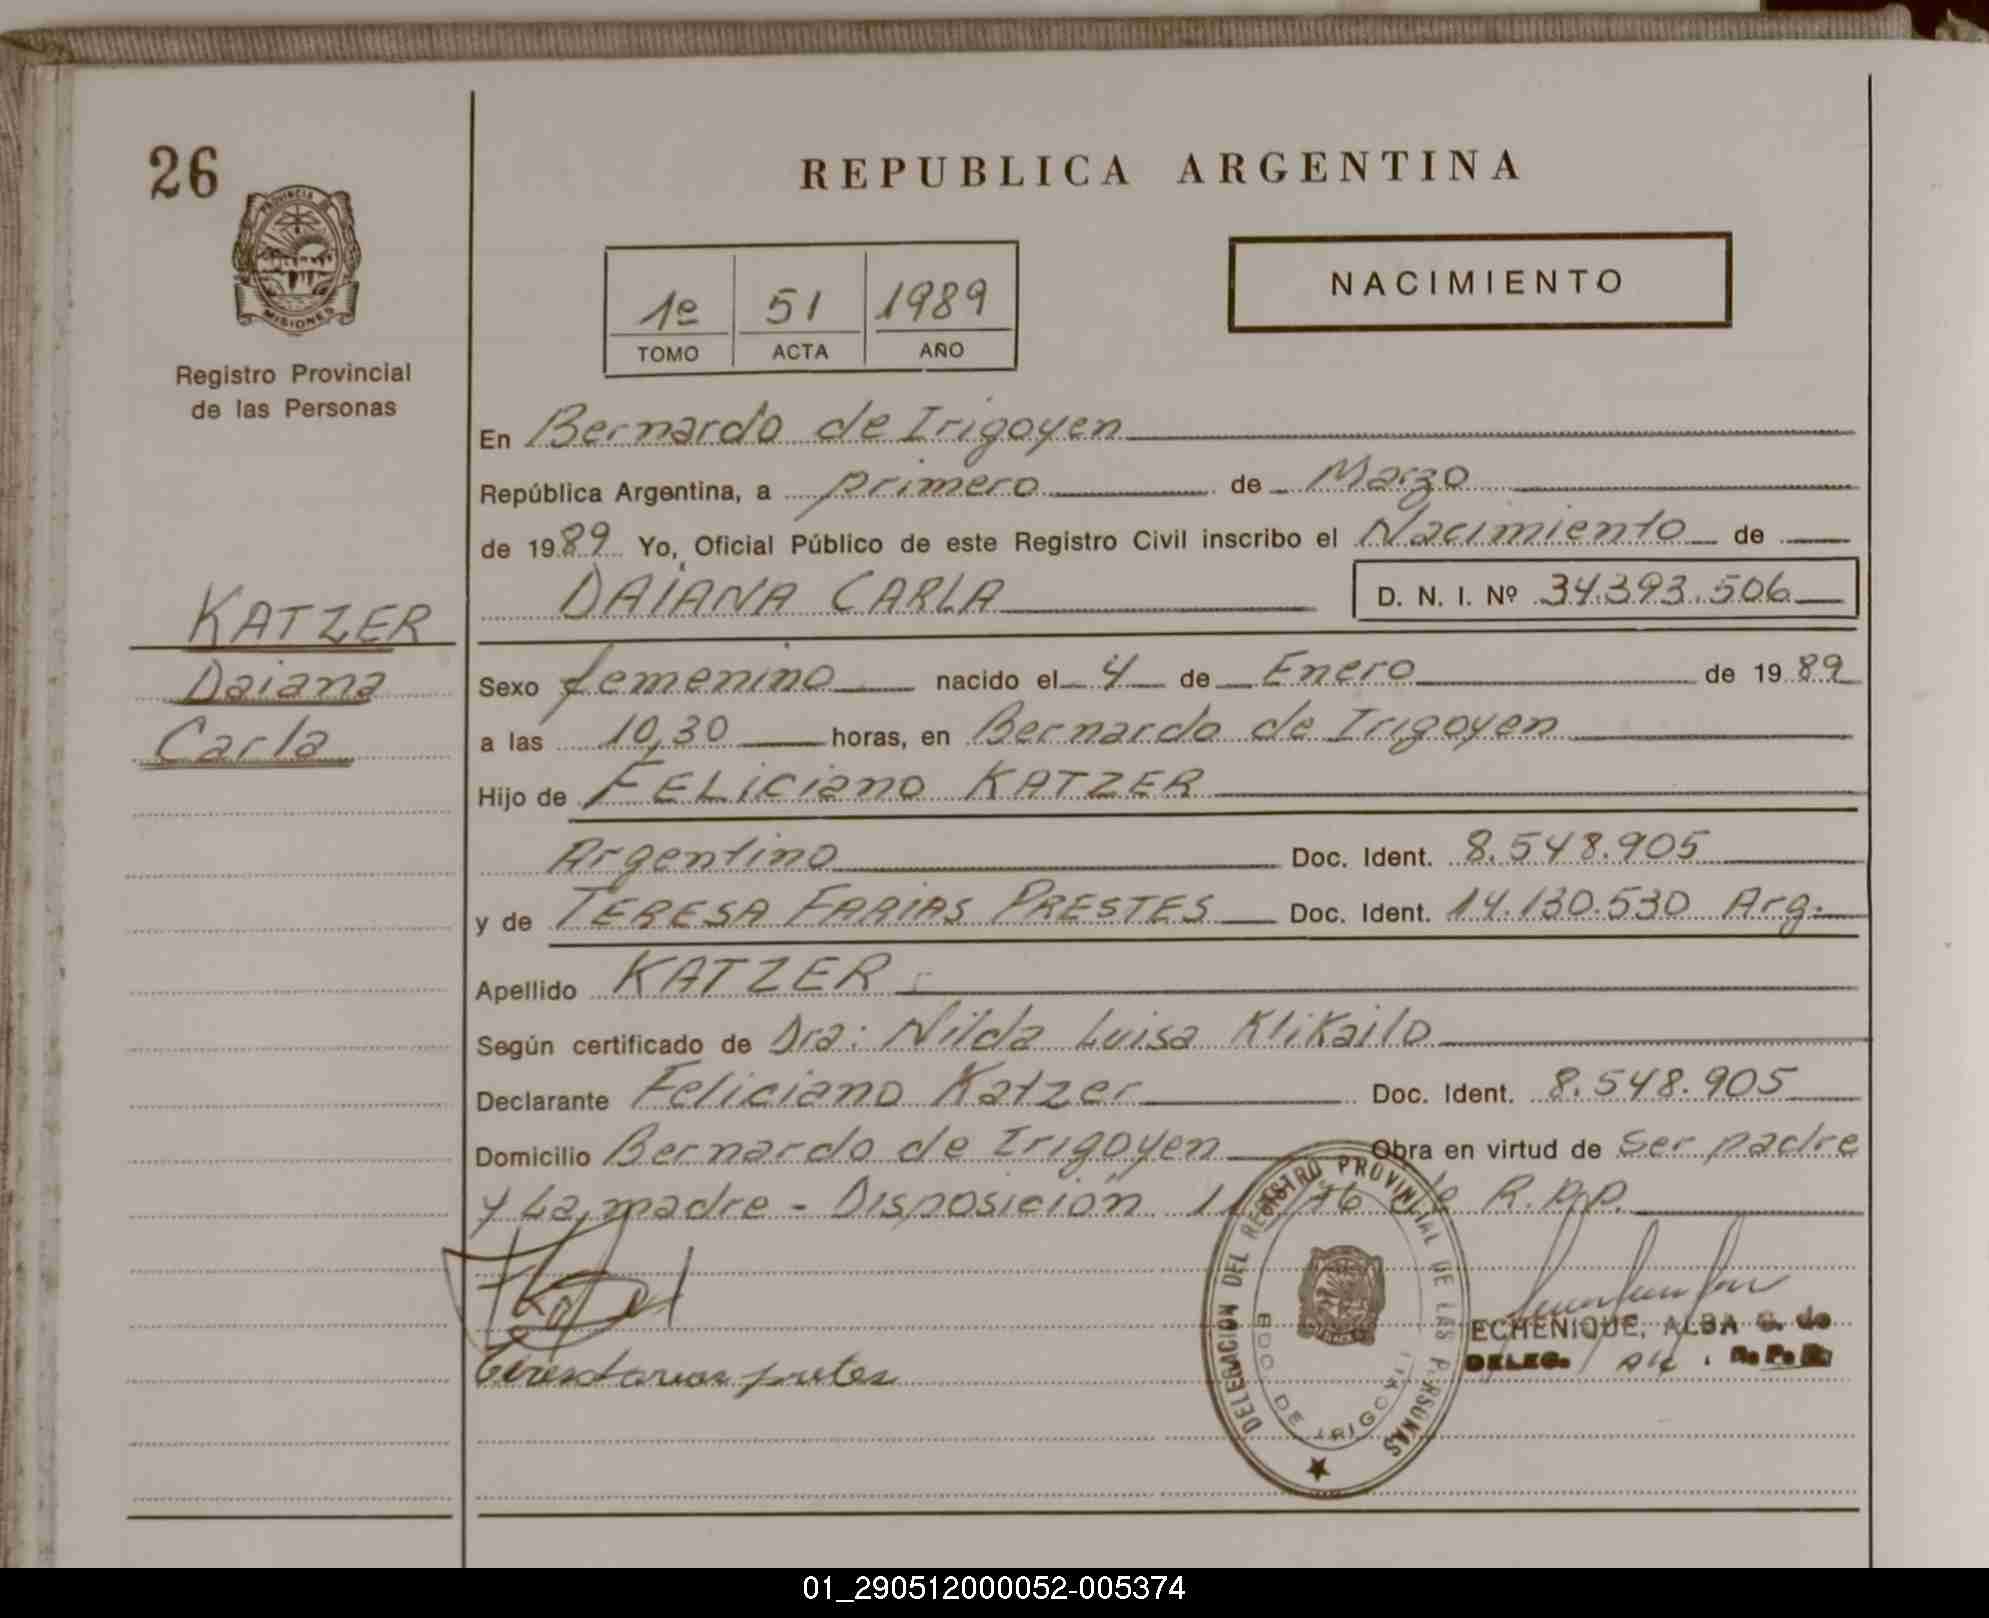 26
PROVINCIA DE
MISIONES
Registro Provincial
de las Personas
KATZER
Daiana
Carla
REPUBLICA ARGENTINA
1º 51 1989
TOMO ACTA AÑO
NACIMIENTO
En Bernardo de Irigoyen
República Argentina, a primero de Marzo
de 1989 Yo, Oficial Público de este Registro Civil inscribo el Nacimiento de
DAIANA CARLA D. N. I. Nº 34.393.506
Sexo femenino nacido el 4 de Enero de 1989
a las 10,30 horas, en Bernardo de Irigoyen
Hijo de FELiCiano KATZER
Argentino Doc. Ident. 8.548.905
y de TERESA FARIAS PRESTES Doc. Ident. 14.130.530 Arg.
Apellido KATZER
Según certificado de Dra: Nilda Luisa Klikailo
Declarante Feliciano Katzer Doc. Ident. 8.548.905
Domicilio Bernardo de Irigoyen Obra en virtud de Ser padre
y La madre - Disposición 11 76 de R.P.P.
DELEGACION DEL REGISTRO PROVINCIAL DE LAS PERSONAS
BDO DE IRIGOYEN
ECHENIQUE, ALBA G. de
DELEG. R.P.P.
01_290512000052-005374